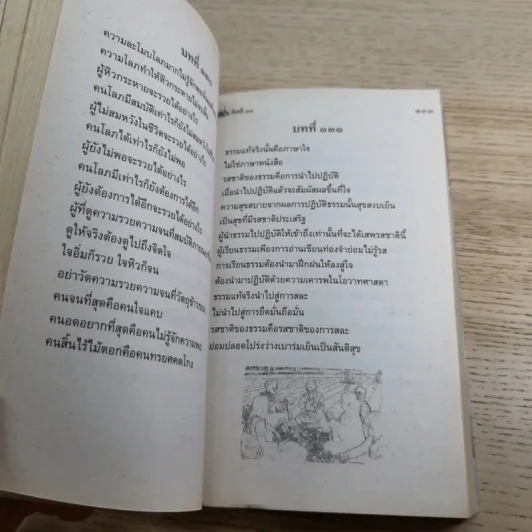 บทที่ ๑๓๐
ความละโมบโลภมากไม่รู้จักพอ
ความโลภทำให้หิวกระหายไม่
ผู้หิวกระหายจะรวยได้อย่างไร
คนโลภมีสมบัติเท่าไรก็ยังไม่สมหวัง
ผู้ไม่สมหวังในชีวิตจะรวยได้อย่างไร
คนโลภได้เท่าไรก็ยังไม่พอ
ผู้ยังไม่พอจะรวยได้อย่างไร
คนโลภมีเท่าไรก็ยังต้องการได้อีก
ผู้ยังต้องการได้อีกจะรวยได้อย่างไร
ผู้ที่ดูความรวยความจนที่สมบัติภายนอก
ดูให้จริงต้องดูไปถึงจิตใจ
ใจอิ่มก็รวย ใจหิวก็จน
อย่าวัดความรวยความจนที่วัตถุข้าวของ
คนจนที่สุดคือคนใจแคบ
คนอดอยากที่สุดคือคนไม่รู้จักความพอ
คนสิ้นไร้ไม้ตอกคือคนทรยศคดโกง
บทที่ ๑๓๑
ธรรมแท้จริงนั้นคือภาษาใจ
ไม่ใช่ภาษาหนังสือ
รสชาติของธรรมคือการนำไปปฏิบัติ
เมื่อนำไปปฏิบัติแล้วจะสัมผัสผลขึ้นที่ใจ
ความสุขสบายจากผลการปฏิบัติธรรมนั้นสุขสงบเย็น
เป็นสุขที่มีรสชาติประเสริฐ
ผู้นำธรรมไปปฏิบัติให้เข้าถึงเท่านั้นที่จะได้เสพรสชาตินี้
ผู้เรียนธรรมเพียงการอ่านเขียนท่องจำย่อมไม่รู้รส
การเรียนธรรมต้องนำมาฝึกฝนให้ลงสู่ใจ
ต้องนำมาปฏิบัติด้วยความเคารพในโอวาทศาสดา
ธรรมแท้จริงนำไปสู่การสละ
ไม่นำไปสู่การยึดมั่นถือมั่น
รสชาติของธรรมคือรสชาติของการสละ
ย่อมปลอดโปร่งว่างเบาร่มเย็นเป็นสันติสุข